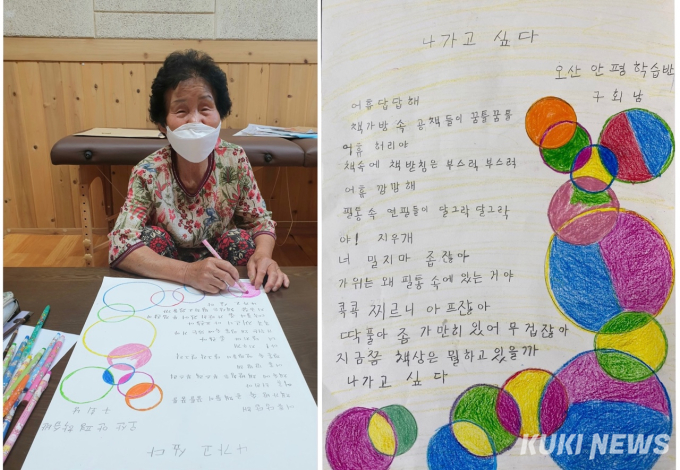 나가고 싶다
오산 안평 학습반
구 회 남
어휴 답답해
책가방 속 공책들이 꿈틀꿈틀
어휴 허리야
책속에 책 받침은 부스럭 부스럭
어휴 깜깜해
필통 속 연필들이 달그락 달그락
야! 지우개
너 밀지마 좁잖아
가위는 왜 필통 속에 있는 거야
콕콕 찌르니 아프잖아
딱풀아 좀 가만히 있어 무겁잖아
지금쯤 책상은 뭘하고 있을까
나가고 싶다
KUKI NEWS
나가고 싶다
오산 안평 학습반